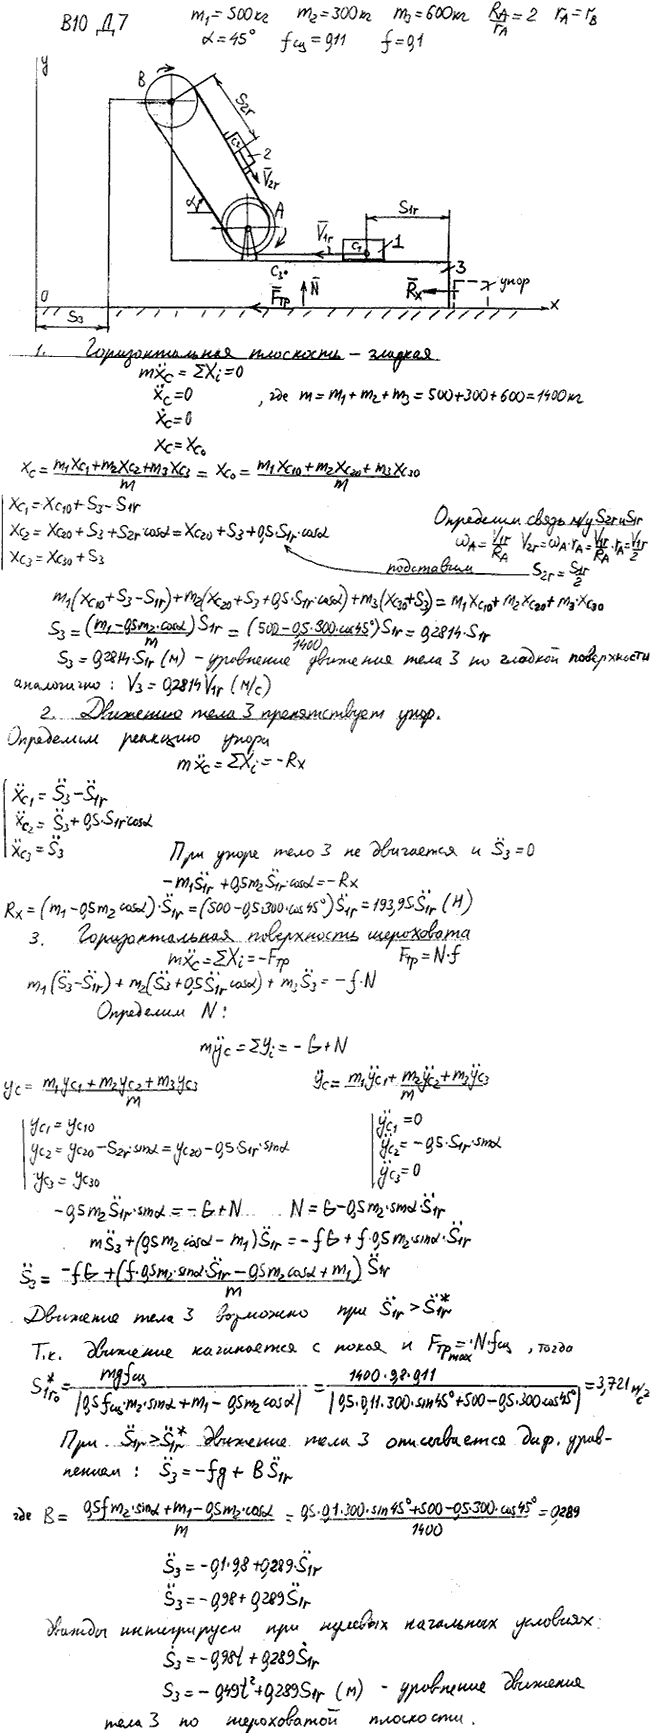 В10 Д7
m₁=500кг m₂=300кг m₃=600кг R_A/r_A=2 r_A=r_B
α=45° f_сц=0,11 f=0,1
y
B
S₂r
C₂
2
V̄₂r
α
A
S₁r
V̄₁r
C₁
1
C₃
3
F̄тр
N̄
R̄x
упор
0
x
S₃
1. Горизонтальная плоскость – гладкая
mẍc = ΣXi = 0
ẍc=0 , где m=m₁+m₂+m₃=500+300+600=1400кг
ẋc=0
xc=xc₀
xc = (m₁xc₁+m₂xc₂+m₃xc₃)/m = xc₀ = (m₁xc₁₀+m₂xc₂₀+m₃xc₃₀)/m
xc₁=xc₁₀+S₃-S₁r
xc₂=xc₂₀+S₃+S₂r·cosα=xc₂₀+S₃+0,5·S₁r·cosα
xc₃=xc₃₀+S₃
Определим связь м/у S₂r и S₁r
ω_A=V₁r/R_A V₂r=ω_A·r_A=V₁r/R_A·r_A=V₁r/2
подставим S₂r=S₁r/2
m₁(xc₁₀+S₃-S₁r)+m₂(xc₂₀+S₃+0,5·S₁r·cosα)+m₃(xc₃₀+S₃)=m₁xc₁₀+m₂xc₂₀+m₃·xc₃₀
S₃=(m₁-0,5m₂·cosα)/m S₁r=(500-0,5·300·cos45°)/1400 S₁r=0,2814·S₁r
S₃=0,2814·S₁r (м) – уровнение движения тела 3 по гладкой поверхности
аналогично: V₃=0,2814V₁r (м/с)
2. Движению тела 3 препятствует упор.
Определим реакцию упора
mẍc=ΣXi=-Rx
ẍc₁=S̈₃-S̈₁r
ẍc₂=S̈₃+0,5·S̈₁r·cosα
ẍc₃=S̈₃
При упоре тело 3 не двигается и S̈₃=0
-m₁S̈₁r+0,5m₂S̈₁r·cosα=-Rx
Rx=(m₁-0,5m₂cosα)·S̈₁r=(500-0,5·300·cos45°)S̈₁r=193,95S̈₁r (Н)
3. Горизонтальная поверхность шероховата
mẍc=ΣXi=-Fтр Fтр=N·f
m₁(S̈₃-S̈₁r)+m₂(S̈₃+0,5S̈₁r cosα)+m₃S̈₃=-f·N
Определим N:
mÿc=Σyi=-G+N
yc=(m₁yc₁+m₂yc₂+m₃yc₃)/m ÿc=(m₁ÿc₁+m₂ÿc₂+m₃ÿc₃)/m
yc₁=yc₁₀
yc₂=yc₂₀-S₂r·sinα=yc₂₀-0,5·S₁r·sinα
yc₃=yc₃₀
ÿc₁=0
ÿc₂=-0,5·S̈₁r·sinα
ÿc₃=0
-0,5m₂S̈₁r·sinα=-G+N N=G-0,5m₂·sinα·S̈₁r
mS̈₃+(0,5m₂cosα-m₁)S̈₁r=-fG+f·0,5m₂sinα·S̈₁r
S̈₃=(-fG+(f·0,5m₂·sinα·S̈₁r-0,5m₂cosα+m₁)S̈₁r)/m
Движение тела 3 возможно при S̈₁r>S̈₁r*
Т.к. движение начинается с покоя и Fтр max=N·fсц, тогда
S̈₁r₀*=mgfсц/|0,5fсц·m₂·sinα+m₁-0,5m₂cosα|=1400·9,8·0,11/|0,5·0,11·300·sin45°+500-0,5·300cos45°|=3,721м/с²
При S̈₁r>S̈₁r* движение тела 3 описывается диф. урав-
нением: S̈₃=-fg+BS̈₁r
где B=(0,5fm₂·sinα+m₁-0,5m₂·cosα)/m=(0,5·0,1·300·sin45°+500-0,5·300·cos45°)/1400=0,289
S̈₃=-0,1·9,8+0,289·S̈₁r
S̈₃=-0,98+0,289S̈₁r
дважды интегрируем при нулевых начальных условиях:
Ṡ₃=-0,98t+0,289Ṡ₁r
S₃=-0,49t²+0,289S₁r (м) – уровнение движения
тела 3 по шероховатой плоскости.